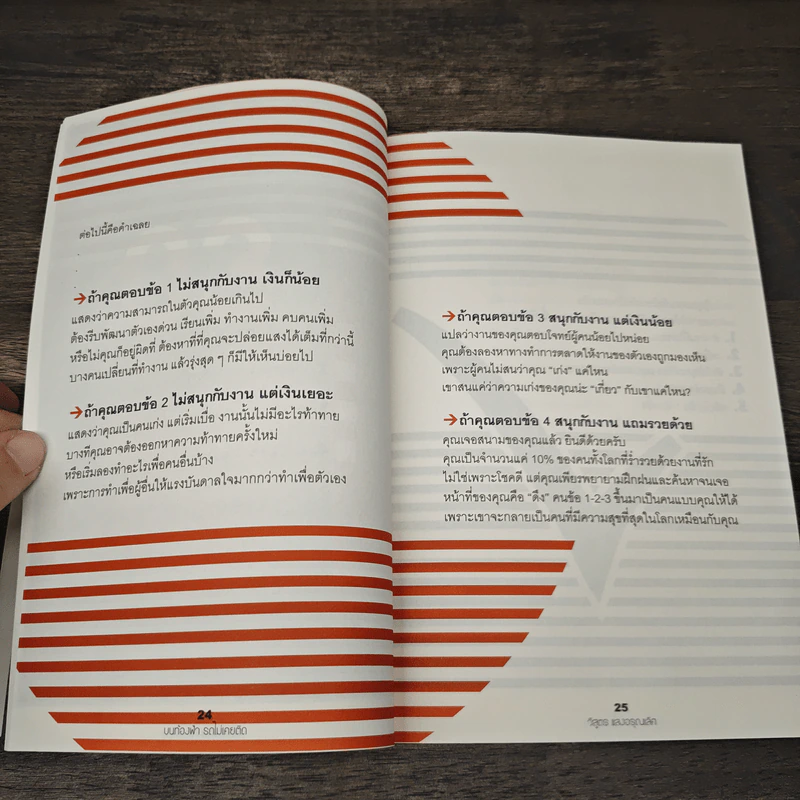 ต่อไปนี้คือคำเฉลย
→ถ้าคุณตอบข้อ 1 ไม่สนุกกับงาน เงินก็น้อย
แสดงว่าความสามารถในตัวคุณน้อยเกินไป
ต้องรีบพัฒนาตัวเองด่วน เรียนเพิ่ม ทำงานเพิ่ม คบคนเพิ่ม
หรือไม่คุณก็อยู่ผิดที่ ต้องหาที่ที่คุณจะปล่อยแสงได้เต็มที่กว่านี้
บางคนเปลี่ยนที่ทำงาน แล้วรุ่งสุด ๆ ก็มีให้เห็นบ่อยไป
→ถ้าคุณตอบข้อ 2 ไม่สนุกกับงาน แต่เงินเยอะ
แสดงว่าคุณเป็นคนเก่ง แต่เริ่มเบื่อ งานนั้นไม่มีอะไรท้าทาย
บางทีคุณอาจต้องออกหาความท้าทายครั้งใหม่
หรือเริ่มลองทำอะไรเพื่อคนอื่นบ้าง
เพราะการทำเพื่อผู้อื่นให้แรงบันดาลใจมากกว่าทำเพื่อตัวเอง
24
บนท้องฟ้า รถไม่เคยติด
→ถ้าคุณตอบข้อ 3 สนุกกับงาน แต่เงินน้อย
แปลว่างานของคุณตอบโจทย์ผู้คนน้อยไปหน่อย
คุณต้องลองหาทางทำการตลาดให้งานของตัวเองถูกมองเห็น
เพราะผู้คนไม่สนว่าคุณ "เก่ง" แค่ไหน
เขาสนแค่ว่าความเก่งของคุณน่ะ "เกี่ยว" กับเขาแค่ไหน?
→ถ้าคุณตอบข้อ 4 สนุกกับงาน แถมรวยด้วย
คุณเจอสนามของคุณแล้ว ยินดีด้วยครับ
คุณเป็นจำนวนแค่ 10% ของคนทั้งโลกที่ร่ำรวยด้วยงานที่รัก
ไม่ใช่เพราะโชคดี แต่คุณเพียรพยายามฝึกฝนและค้นหาจนเจอ
หน้าที่ของคุณคือ "ดึง" คนข้อ 1-2-3 ขึ้นมาเป็นคนแบบคุณให้ได้
เพราะเขาจะกลายเป็นคนที่มีความสุขที่สุดในโลกเหมือนกับคุณ
25
วิสูตร แสงอรุณเลิศ